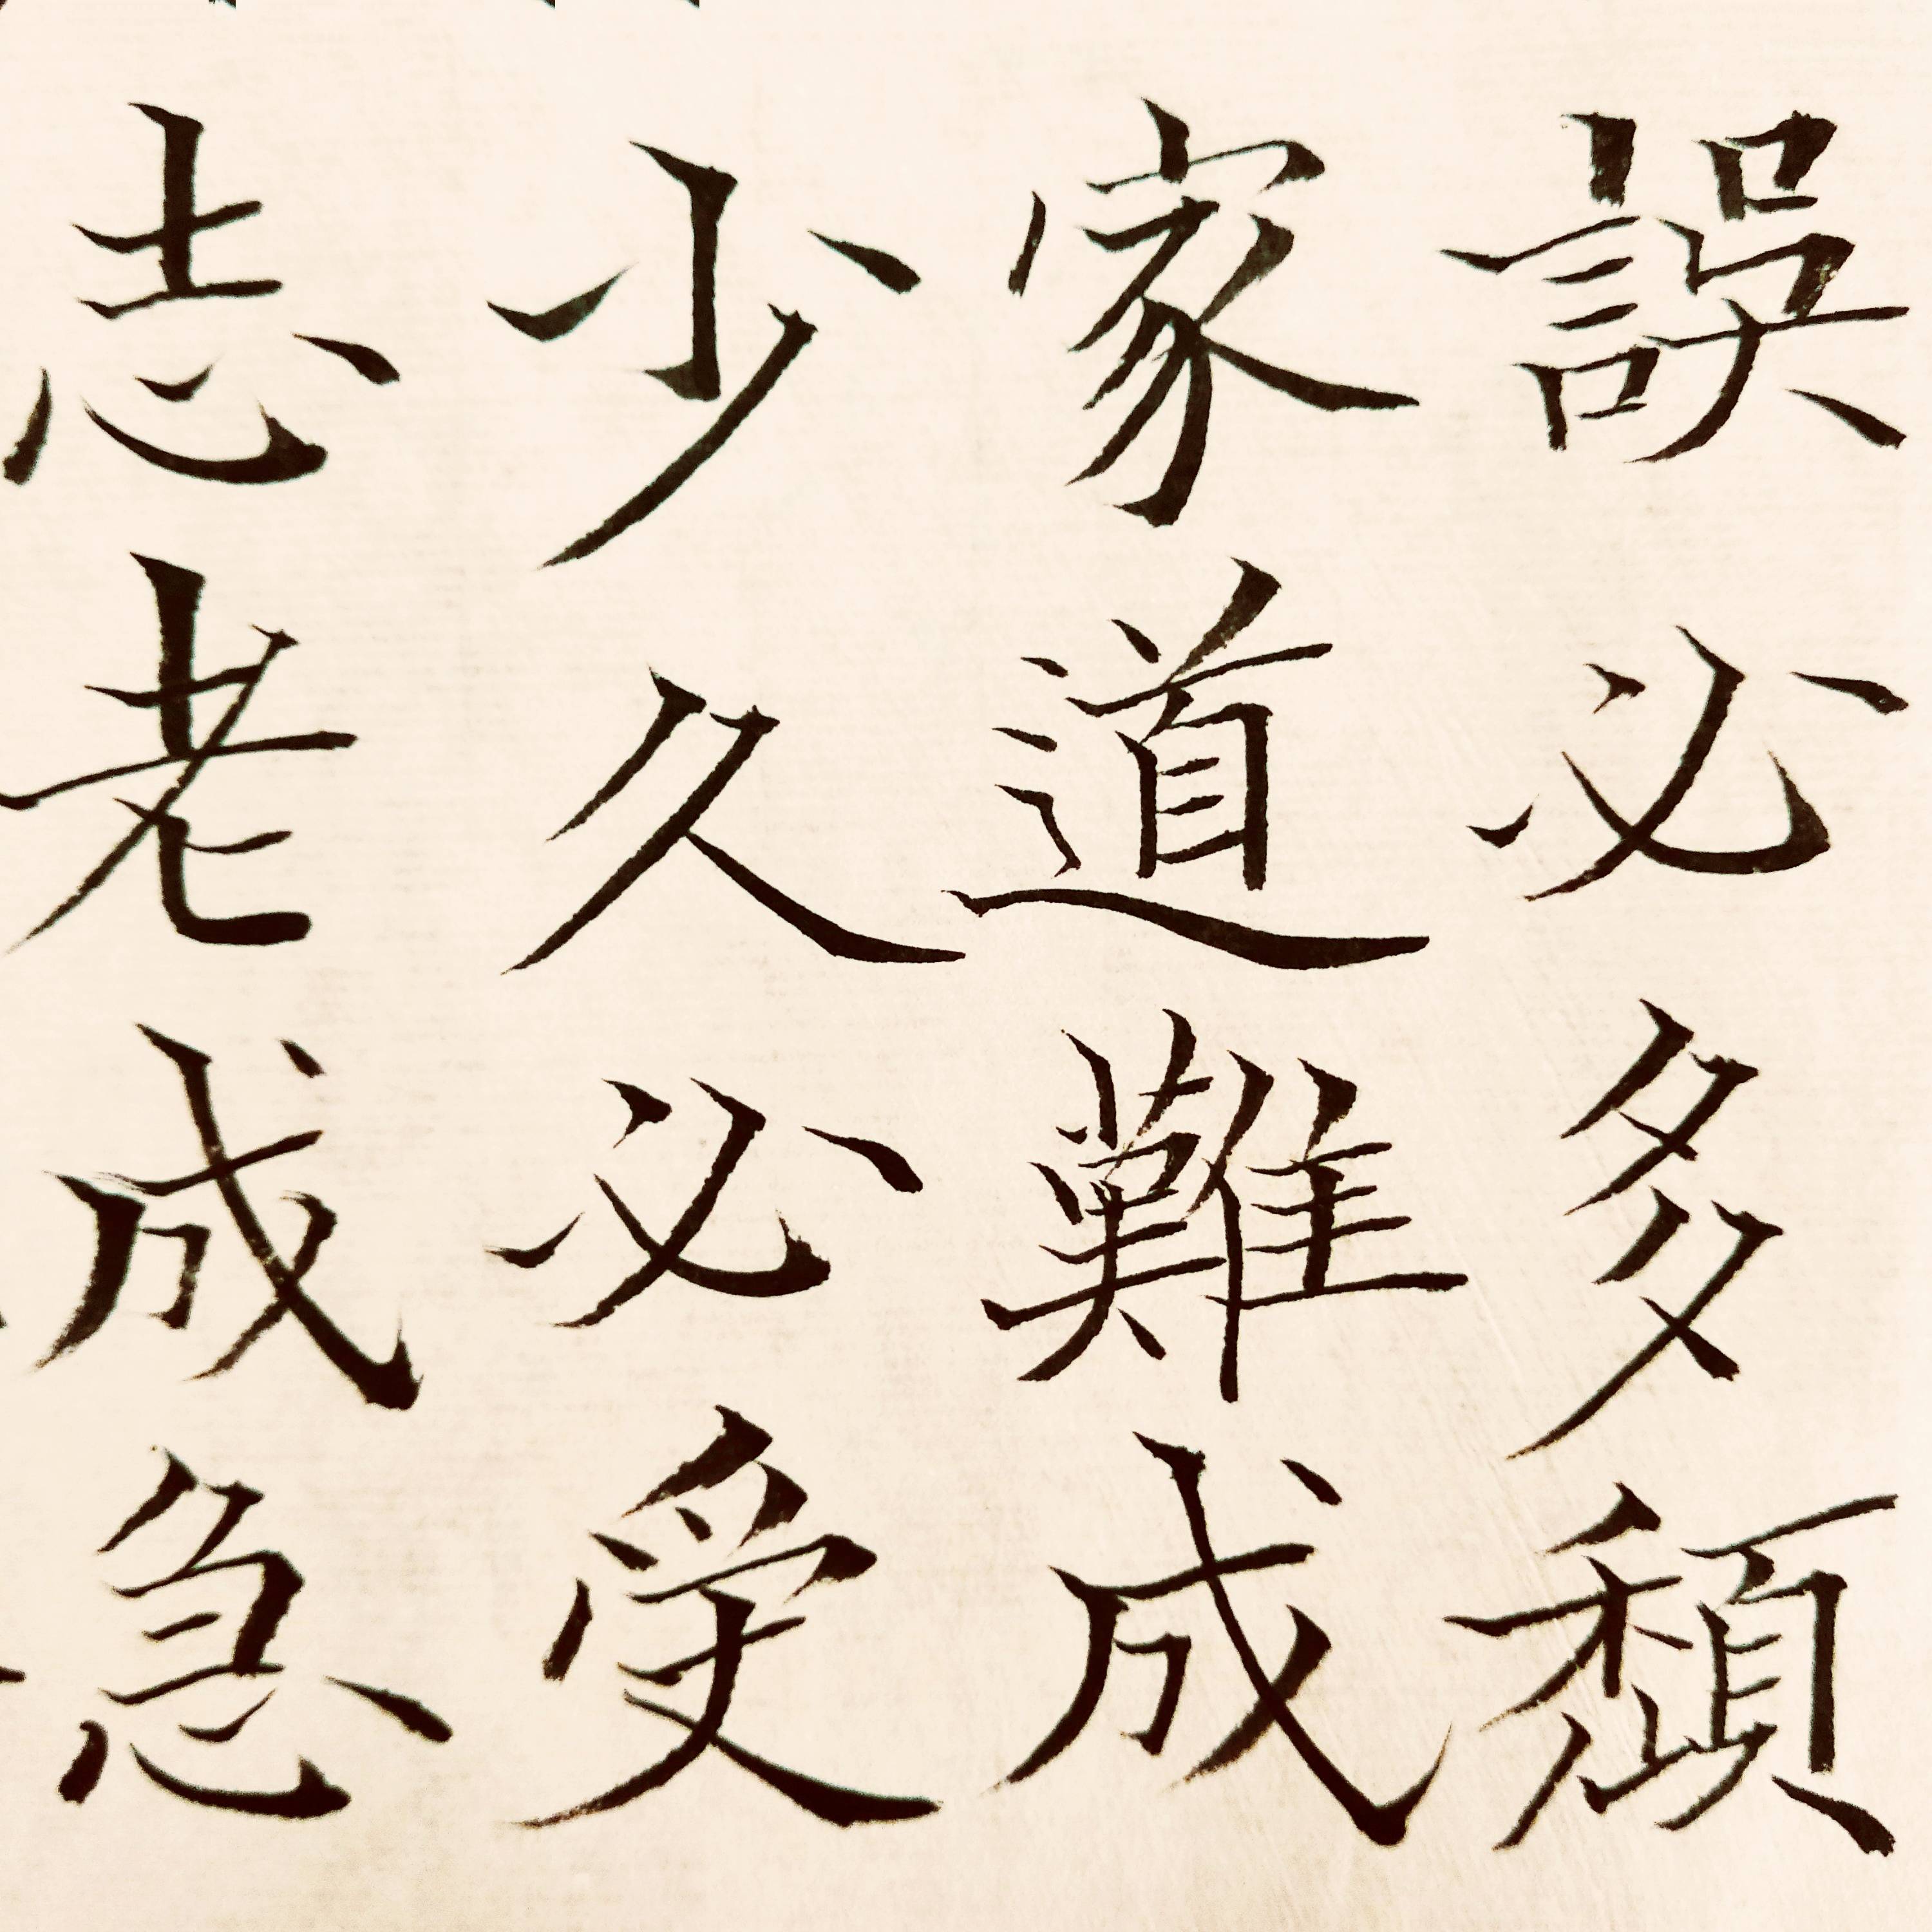 誤必多頹
家道難成
少久必受
志老成急